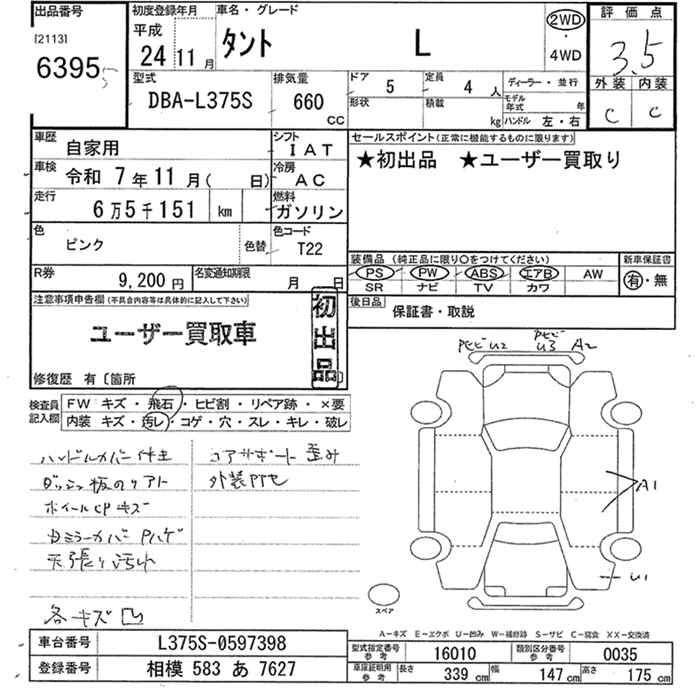 出品番号 初度登録年月 車名・グレード 評価点
[2113] 平成 2WD
6395 24 11月 タント L ・ 3.5
4WD
型式 排気量 ドア 5 定員 4 人 ディーラー・並行 外装 内装
DBA-L375S 660 CC 形状 積載 kg モデル年式 年 C C
ハンドル 左・右
車歴 自家用 シフト IAT セールスポイント(正常に機能するものに限ります)
車検 令和 7年 11月( 日) 冷房 AC ★初出品 ★ユーザー買取り
走行 6万5千151 km 燃料 ガソリン
色 ピンク 色替 色コード T22
装備品(純正品に限り○をつけてください) 新車保証書
R券 9,200円 名変通知期限 月 日 PS PW ABS エアB AW 有・無
SR ナビ TV カワ
注意事項申告欄(不具合内容等は具体的に記入して下さい) 初出品 後日品 保証書・取説
ユーザー買取車
修復歴 有〔箇所 〕
検査員記入欄 FW キズ・飛石・ヒビ割・リペア跡・×要
内装 キズ・汚レ・コゲ・穴・スレ・キレ・破レ
U2 U3 A2
ハンドルカバー コアサポート 歪み
ホイールCPキズ
ミラーカバー
天張り汚れ
A1
U1
各キズ凹
スペア
A-キズ E-エクボ U-凹み W-補修跡 S-サビ C-腐食 XX-交換済
車台番号 L375S-0597398 型式指定番号 参考 16010 類別区分番号 参考 0035
登録番号 相模 583 あ 7627 車庫証明用 参考 長さ 339 cm 幅 147 cm 高さ 175 cm